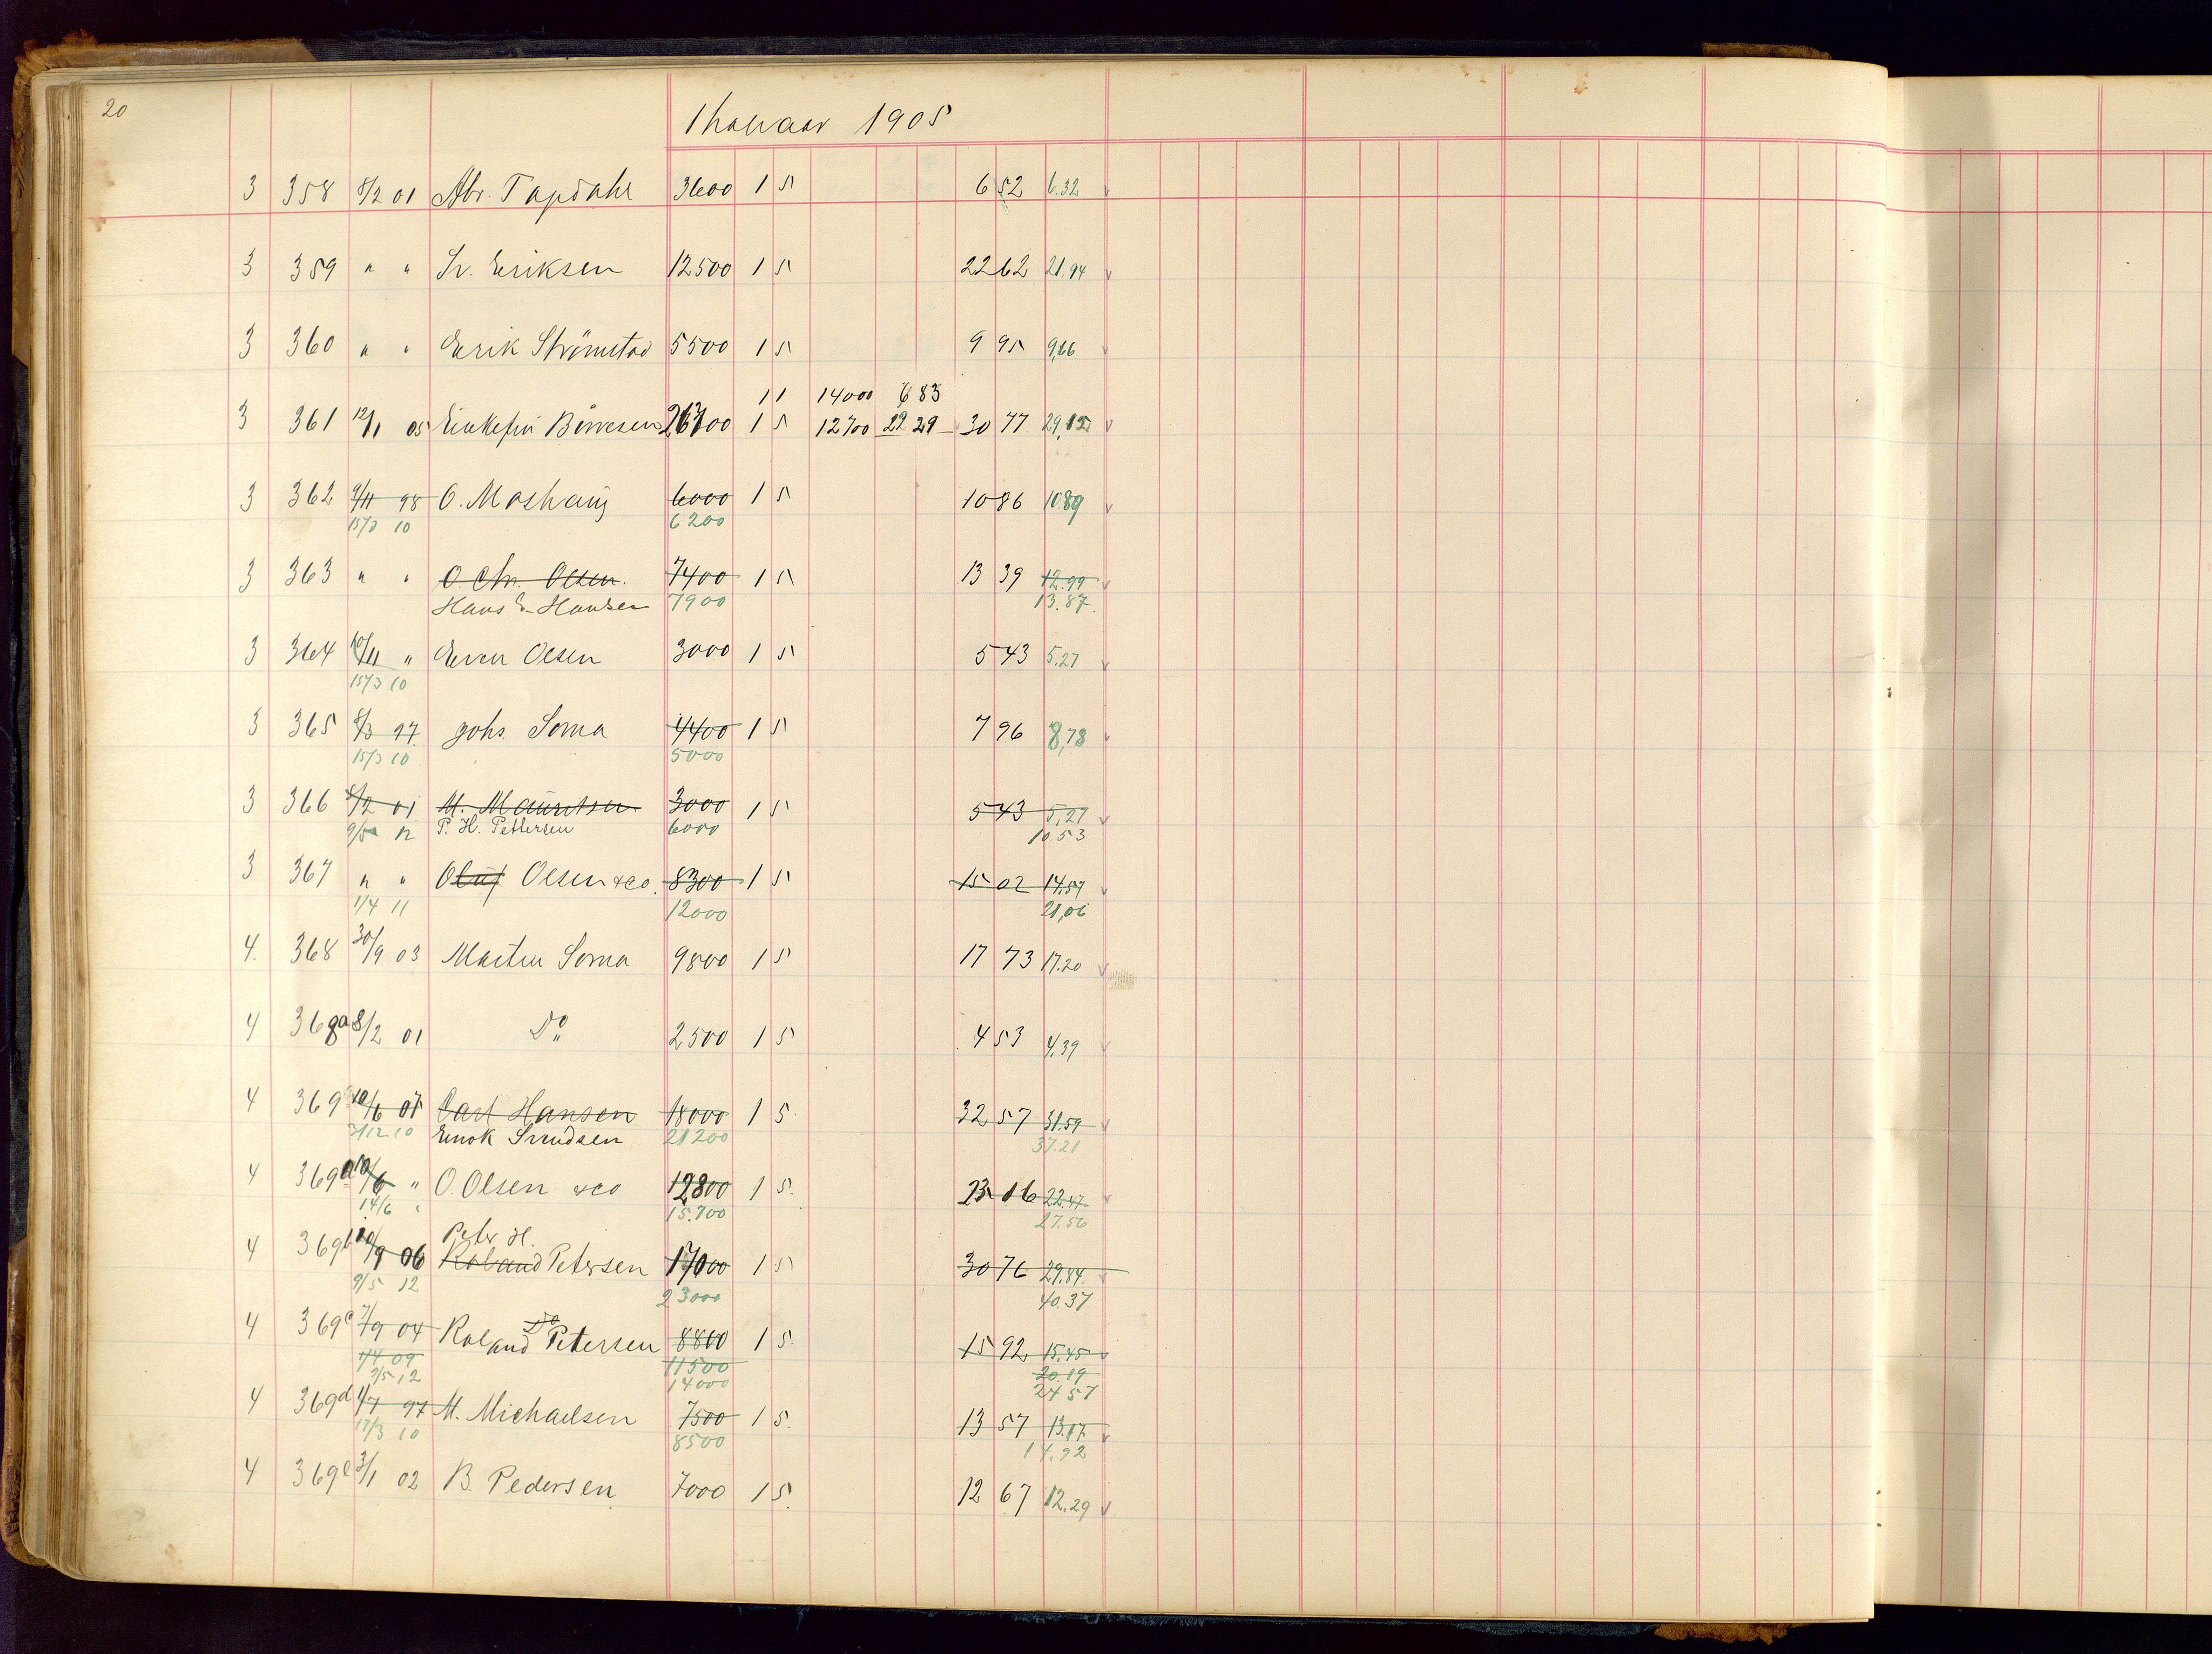 20
1 Januar 1905
3 358 8/2 01 Abr. Tapdahl 3600 1 5 6 52 6.32
3 359 " " Sv. Eriksen 12500 1 5 22 62 21,94
3 360 " " Erik Strömstad 5500 1 5 9 95 9,66
1 1 14000 6 83
3 361 12/1 05 Börresen 26700 1 5 12700 22 29 30 77 29,12
3 362 9/11 98 O. Moshaug 6000 1 5 10 86 10.89
15/3 10 6200
3 363 " " O Chr. Olsen. 7400 1 5 13 39 12.99
Hans E. Hansen 7900 13.87.
3 364 10/11 " Even Olsen 3000 1 5 5 43 5.27
15/3 10
3 365 8/3 97. Johs Soma 4400 1 5 7 96 8,78
15/3 10 5000
3 366 8/2 01 M. Mauritsen 3000 1 5 5 43 5,27
9/5 12 P. H. Pettersen 6000 10.53
3 367 " " Oluf Olsen & co. 8300 1 5 15 02 14.57
1/4 11 12000 21,06
4. 368 30/9 03 Martin Soma 9800 1 5 17 73 17.20
4 368a 8/2 01 Do 2500 1 5 4 53 4.39
4 369 10/6 07 Carl Hansen 18000 1 5 32 57 31.59
12 10 Enok Svendsen 21200 37.21
4 369a 10/6 " O. Olsen & co 12800 1 5. 23 16 22.47
14/6 " 15.700 27.56
Peter H.
4 369b 10/9 06 Roland Petersen 17000 1 5 30 76 29.84.
9/5 12 23000 40.37
Do
4 369c 7/9 04 Roland Petersen 8800 1 5. 15 92 15.45
1/4 09 11500 20.19
9/5 12 14000 24 57
4 369d 1/7 97 M. Michaelsen 7500 1 5. 13 57 13.17
17/3 10 8500 14.92
4 369e 3/1 02 B. Pedersen 7000 1 5. 12 67 12.29